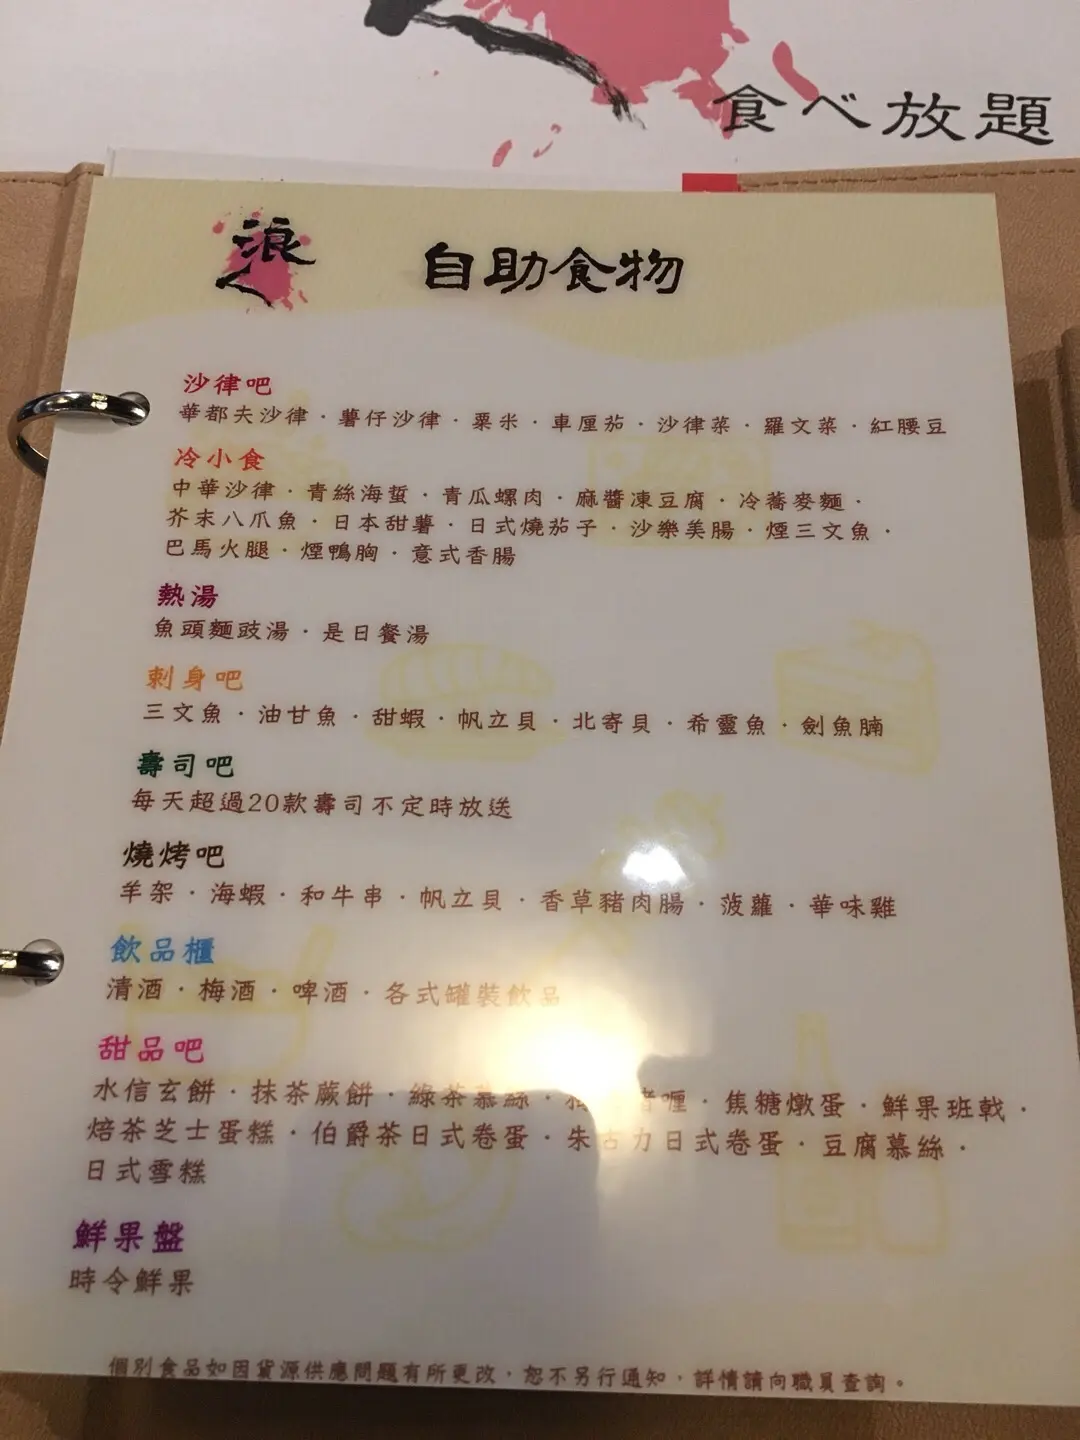 食べ放題
浪人
自助食物
沙律吧
華都夫沙律．薯仔沙律．粟米．車厘茄．沙律菜．羅文菜．紅腰豆
冷小食
中華沙律．青絲海蜇．青瓜螺肉．麻醬凍豆腐．冷蕎麥麵．
芥末八爪魚．日本甜薯．日式燒茄子．沙樂美腸．煙三文魚．
巴馬火腿．煙鴨胸．意式香腸
熱湯
魚頭麵豉湯．是日餐湯
刺身吧
三文魚．油甘魚．甜蝦．帆立貝．北寄貝．希靈魚．劍魚腩
壽司吧
每天超過20款壽司不定時放送
燒烤吧
羊架．海蝦．和牛串．帆立貝．香草豬肉腸．菠蘿．華味雞
飲品櫃
清酒．梅酒．啤酒．各式罐裝飲品
甜品吧
水信玄餅．抹茶蕨餅．綠茶慕絲．者喱．焦糖燉蛋．鮮果班戟．
焙茶芝士蛋糕．伯爵茶日式卷蛋．朱古力日式卷蛋．豆腐慕絲．
日式雪糕
鮮果盤
時令鮮果
個別食品如因貨源供應問題有所更改，恕不另行通知，詳情請向職員查詢。